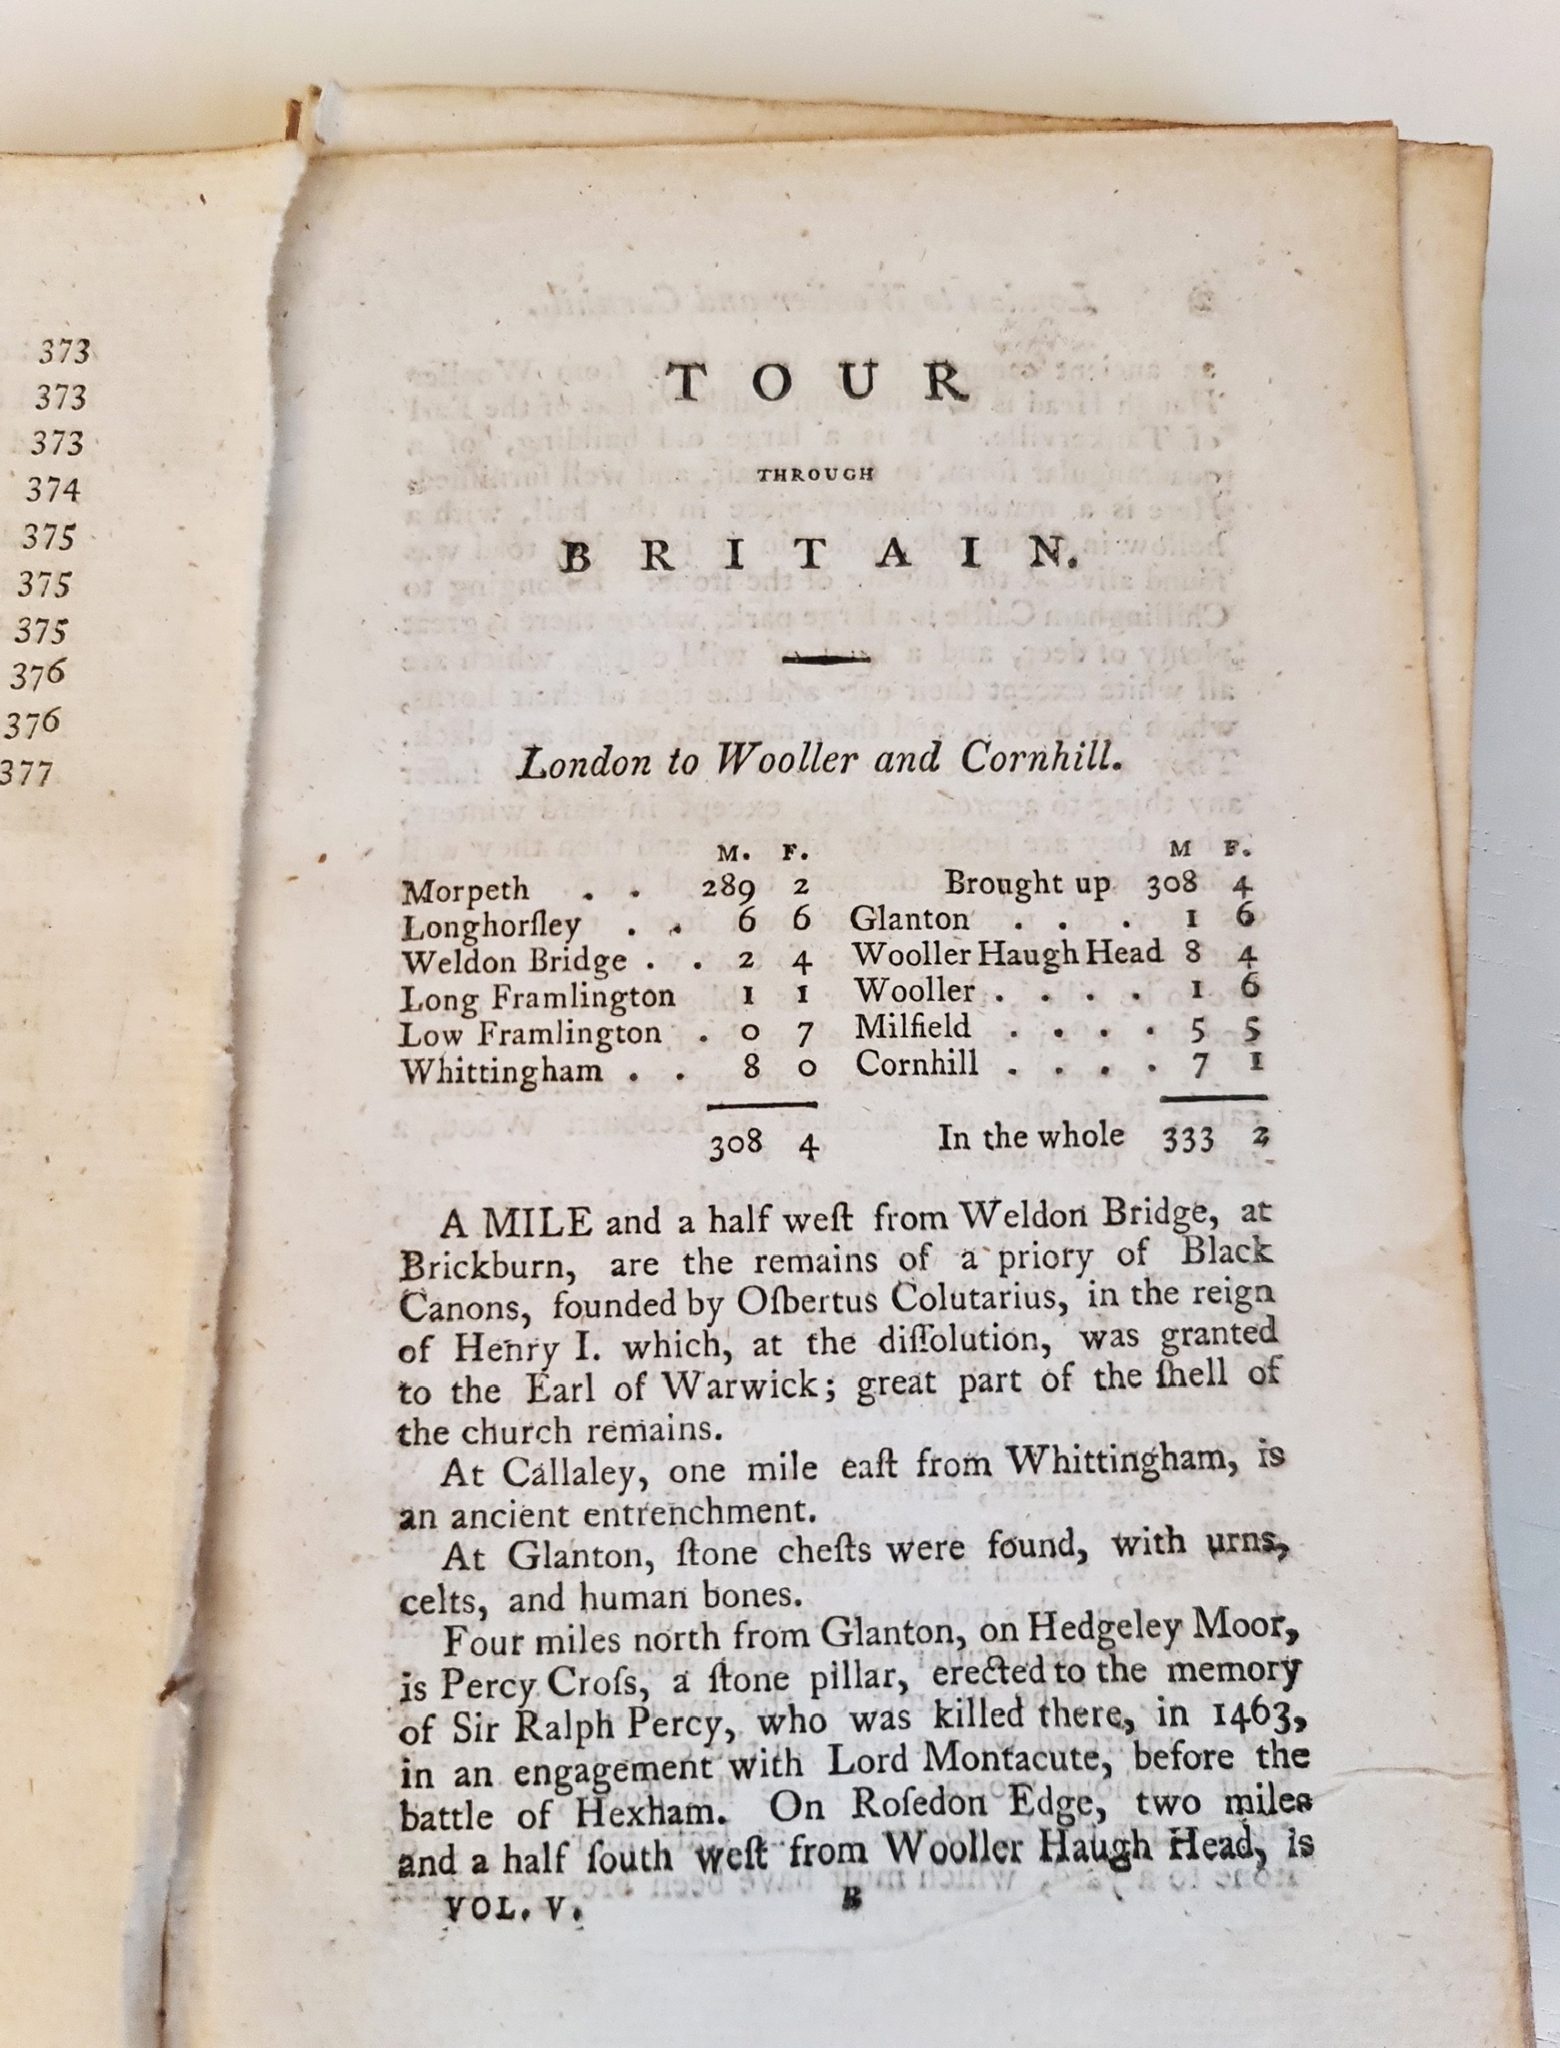 373
373
373
374
375
375
375
376
376
377
TOUR
THROUGH
BRITAIN.
London to Wooller and Cornhill.
M. F.
Morpeth . . 289 2
Longhorſley . . 6 6
Weldon Bridge . . 2 4
Long Framlington 1 1
Low Framlington . 0 7
Whittingham . . 8 0
308 4
M F.
Brought up 308 4
Glanton . . . 1 6
Wooller Haugh Head 8 4
Wooller . . . . 1 6
Milfield . . . . 5 5
Cornhill . . . . 7 1
In the whole 333 2
A MILE and a half weſt from Weldon Bridge, at
Brickburn, are the remains of a priory of Black
Canons, founded by Oſbertus Colutarius, in the reign
of Henry I. which, at the diſſolution, was granted
to the Earl of Warwick; great part of the ſhell of
the church remains.
At Callaley, one mile eaſt from Whittingham, is
an ancient entrenchment.
At Glanton, ſtone cheſts were found, with urns,
celts, and human bones.
Four miles north from Glanton, on Hedgeley Moor,
is Percy Croſs, a ſtone pillar, erected to the memory
of Sir Ralph Percy, who was killed there, in 1463,
in an engagement with Lord Montacute, before the
battle of Hexham. On Roſedon Edge, two miles
and a half ſouth weſt from Wooller Haugh Head, is
VOL. V. B